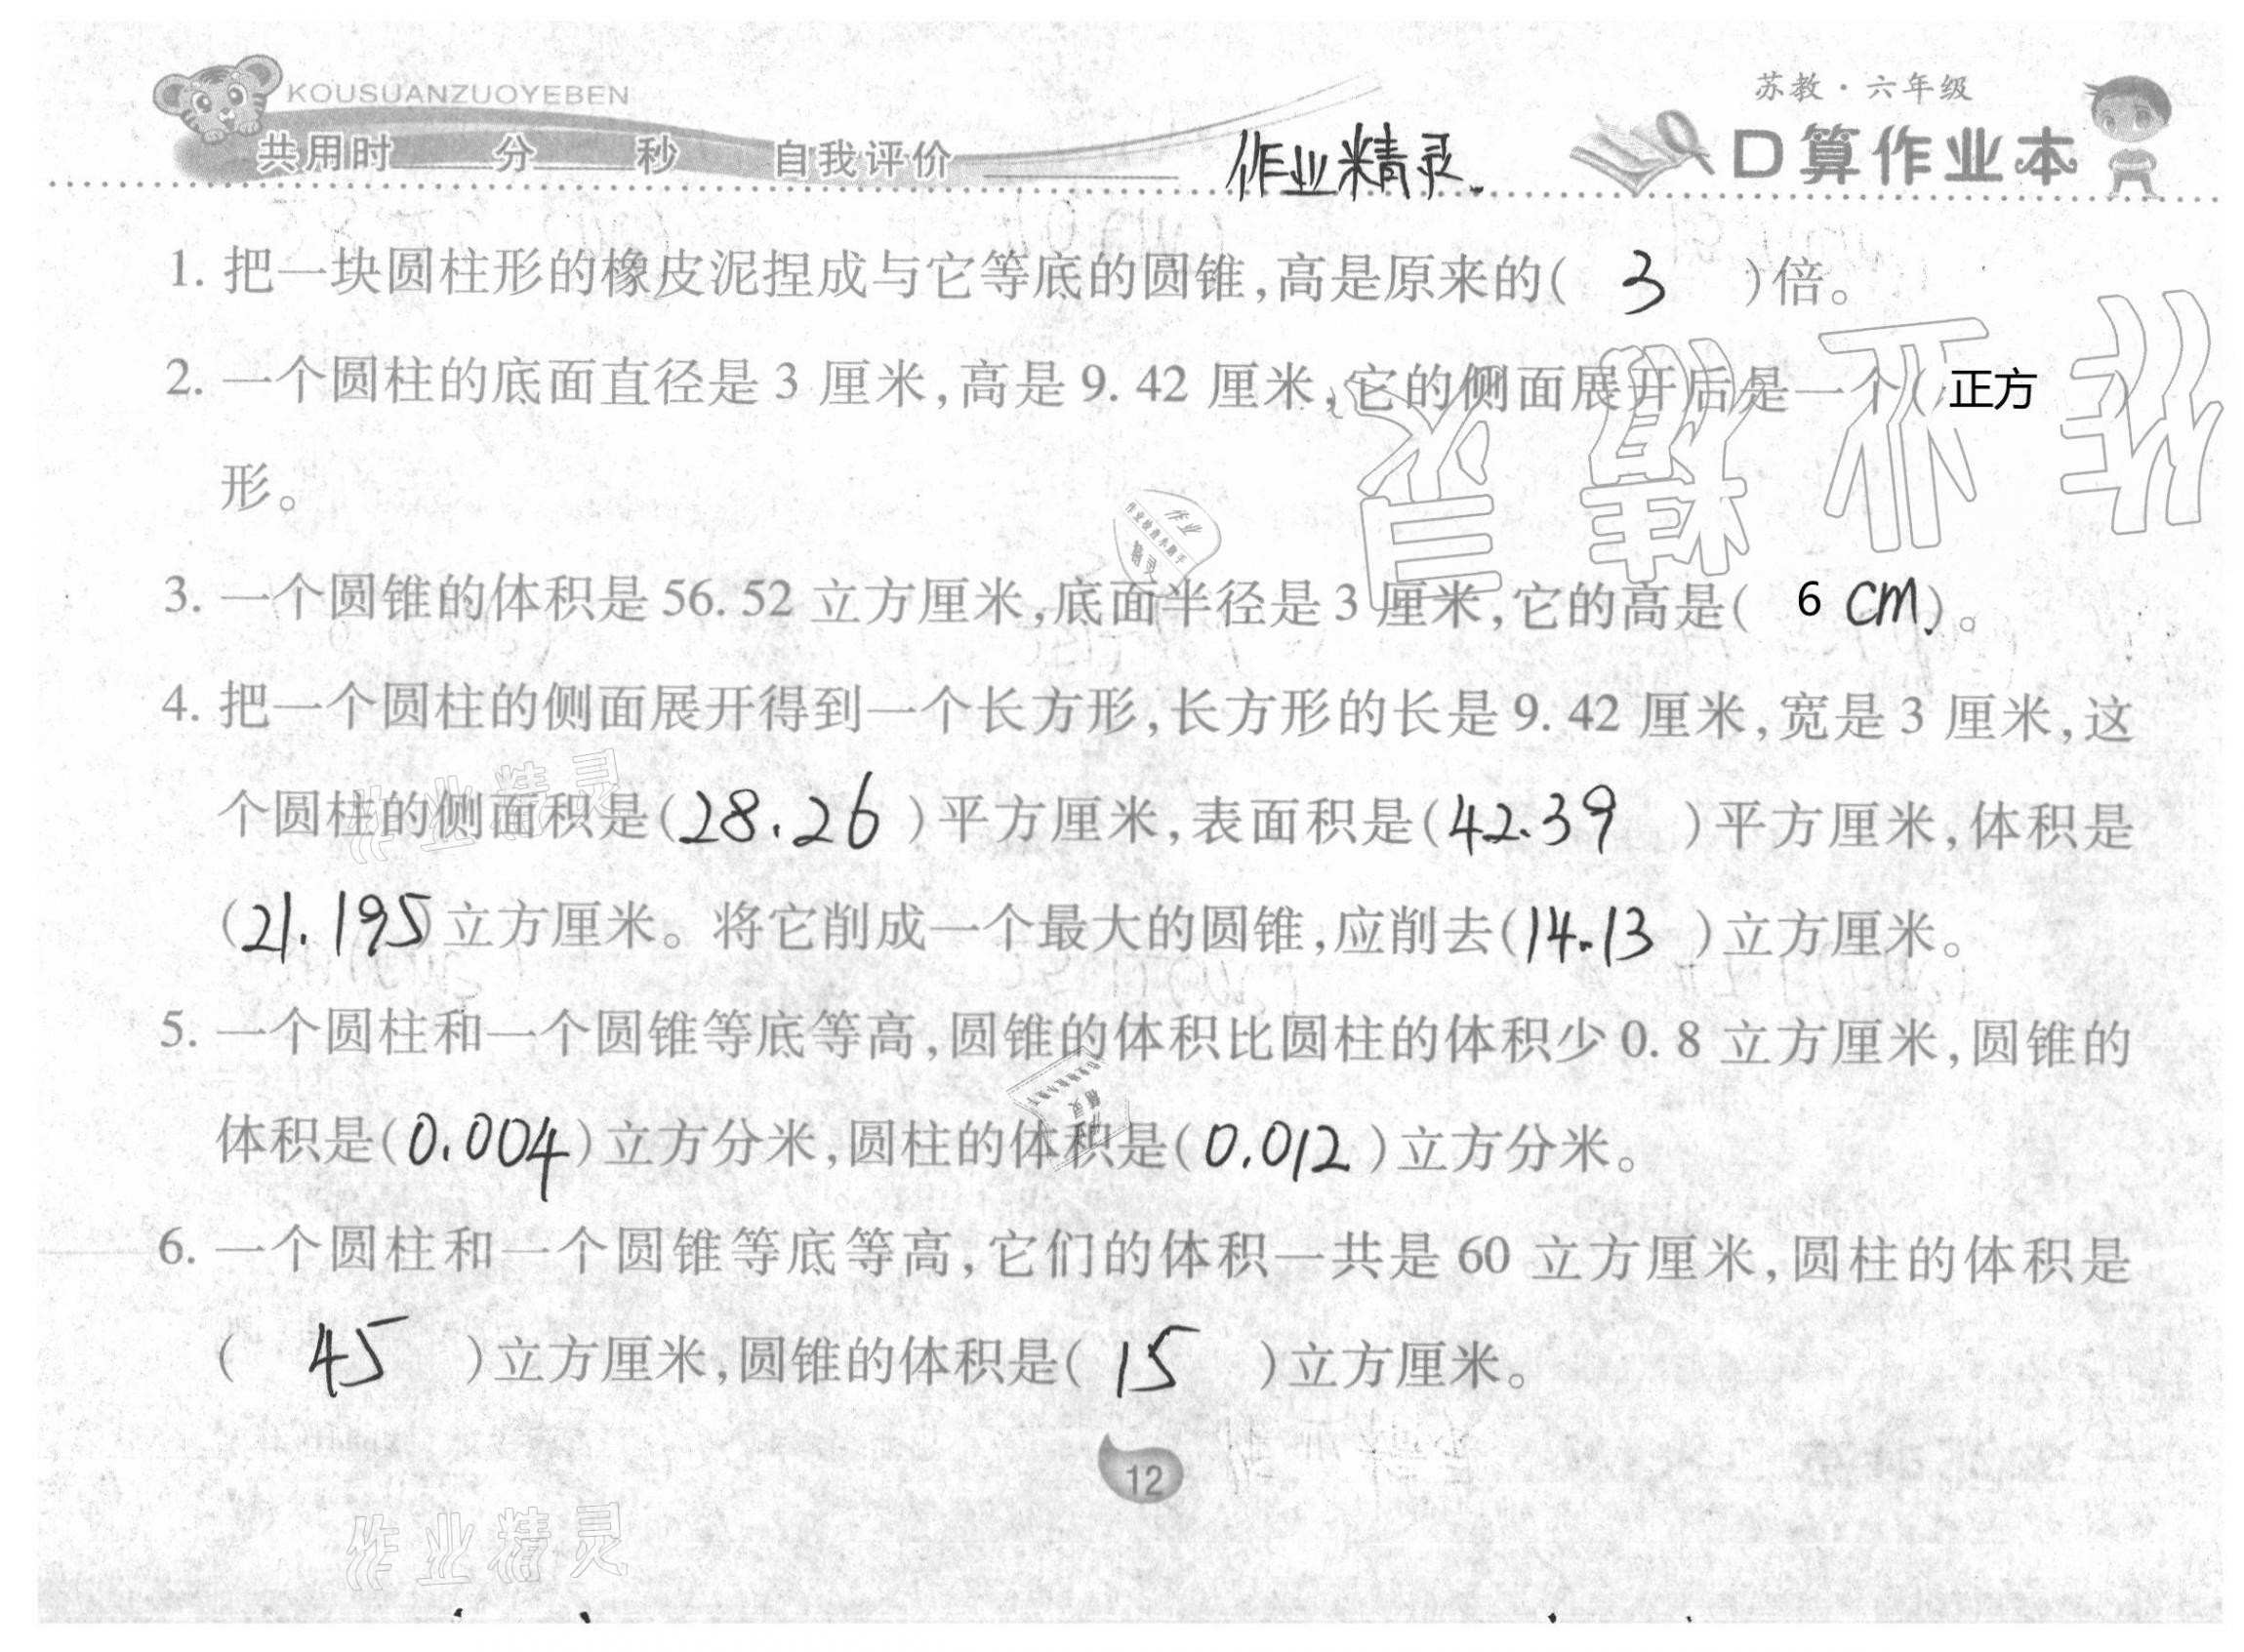 KOUSUANZUOYEBEN
苏教·六年级
共用时 分 秒 自我评价
作业精灵.
口算作业本
1. 把一块圆柱形的橡皮泥捏成与它等底的圆锥,高是原来的( 3 )倍。
2. 一个圆柱的底面直径是 3 厘米,高是 9. 42 厘米,它的侧面展开后是一个( 正方 )
形。
作业
作业检查小助手
精灵
3. 一个圆锥的体积是 56. 52 立方厘米,底面半径是 3 厘米,它的高是( 6 cm)。
4. 把一个圆柱的侧面展开得到一个长方形,长方形的长是 9. 42 厘米,宽是 3 厘米,这
作业精灵
个圆柱的侧面积是(28.26 )平方厘米,表面积是(42.39 )平方厘米,体积是
(21.195)立方厘米。将它削成一个最大的圆锥,应削去(14.13 )立方厘米。
5. 一个圆柱和一个圆锥等底等高,圆锥的体积比圆柱的体积少 0. 8 立方厘米,圆锥的
体积是(0.004)立方分米,圆柱的体积是(0.012)立方分米。
6. 一个圆柱和一个圆锥等底等高,它们的体积一共是 60 立方厘米,圆柱的体积是
( 45 )立方厘米,圆锥的体积是( 15 )立方厘米。
12
作业精灵